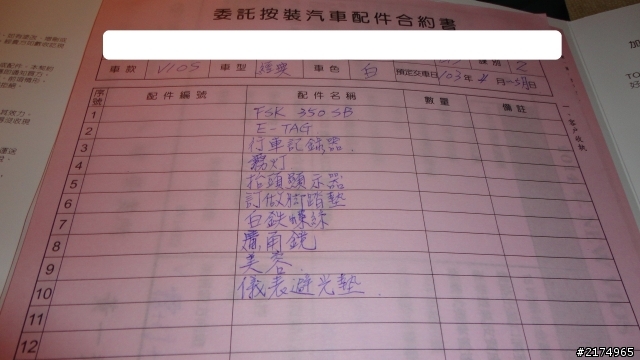 委託按裝汽車配件合約書
車款 VIOS 車型 經典 車色 白 預定交車日 103年 月 日
序號 配件編號 配件名稱 數量 備註
1 FSK 350 SB
2 E-TAG
3 行車記錄器.
4 霧灯
5 抬頭顯示器
6 訂做腳踏墊
7 白鉄
8 角鏡
9 美容.
10 儀表避光墊.
11
12
客戶收執
#2174965